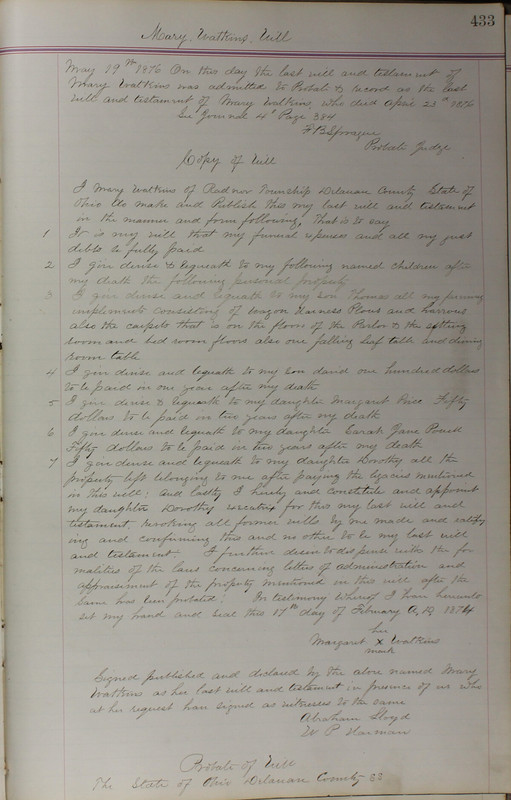 433
Mary Watkins Will
May 19th 1876 On this day the last will and testament of
Mary Watkins was admitted to Probate & record as the last
will and testament of Mary Watkins, who died April 23th 1876
See Journal 4 Page 384
F B Sprague
Probate Judge
Copy of Will
I Mary Watkins of Radnor Township Delaware County State of
Ohio do make and Publish this my last will and testament
in the manner and form following, That is to say
1 It is my will that my funeral expenses and all my just
debts be fully paid
2 I give devise & bequeath to my following named children after
my death the following personal property
3 I give devise and bequeath to my son Thomas all my farming
implements consisting of wagon Harness Plows and harrows
also the carpets that is on the floors of the Parlor & the sitting
room and bed room floors also one falling leaf table and dining
room table
4 I give devise and bequeath to my son david one hundred dollars
to be paid in one year after my death
5 I give devise & bequeath to my daughter Margaret Price Fifty
dollars to be paid in two years after my death
6 I give devise and bequeath to my daughter Sarah Jane Powell
Fifty dollars to be paid in two years after my death
7 I give devise and bequeath to my daughter Dorothy all the
property left belonging to me after paying the legacies mentioned
in this will: and lastly I hereby and constitute and appoint
my daughter Dorothy executrix for this my last will and
testament, revoking all former wills by me made and ratify
ing and confirming this and no other to be my last will
and testament. I further desire to dispense with the for
malities of the laws concerning letters of administration and
appraisement of the property mentioned in this will after the
same has been probated: In testimony whereof I have hereunto
set my hand and seal this 17th day of February A, D, 1874
her
Margaret x Watkins
mark
Signed published and declared by the above named Mary
Watkins as her last will and testament in presence of us who
at her request have signed as witnesses to the same
Abraham Lloyd
W P Harman
Probate of Will
The State of Ohio Delaware County SS